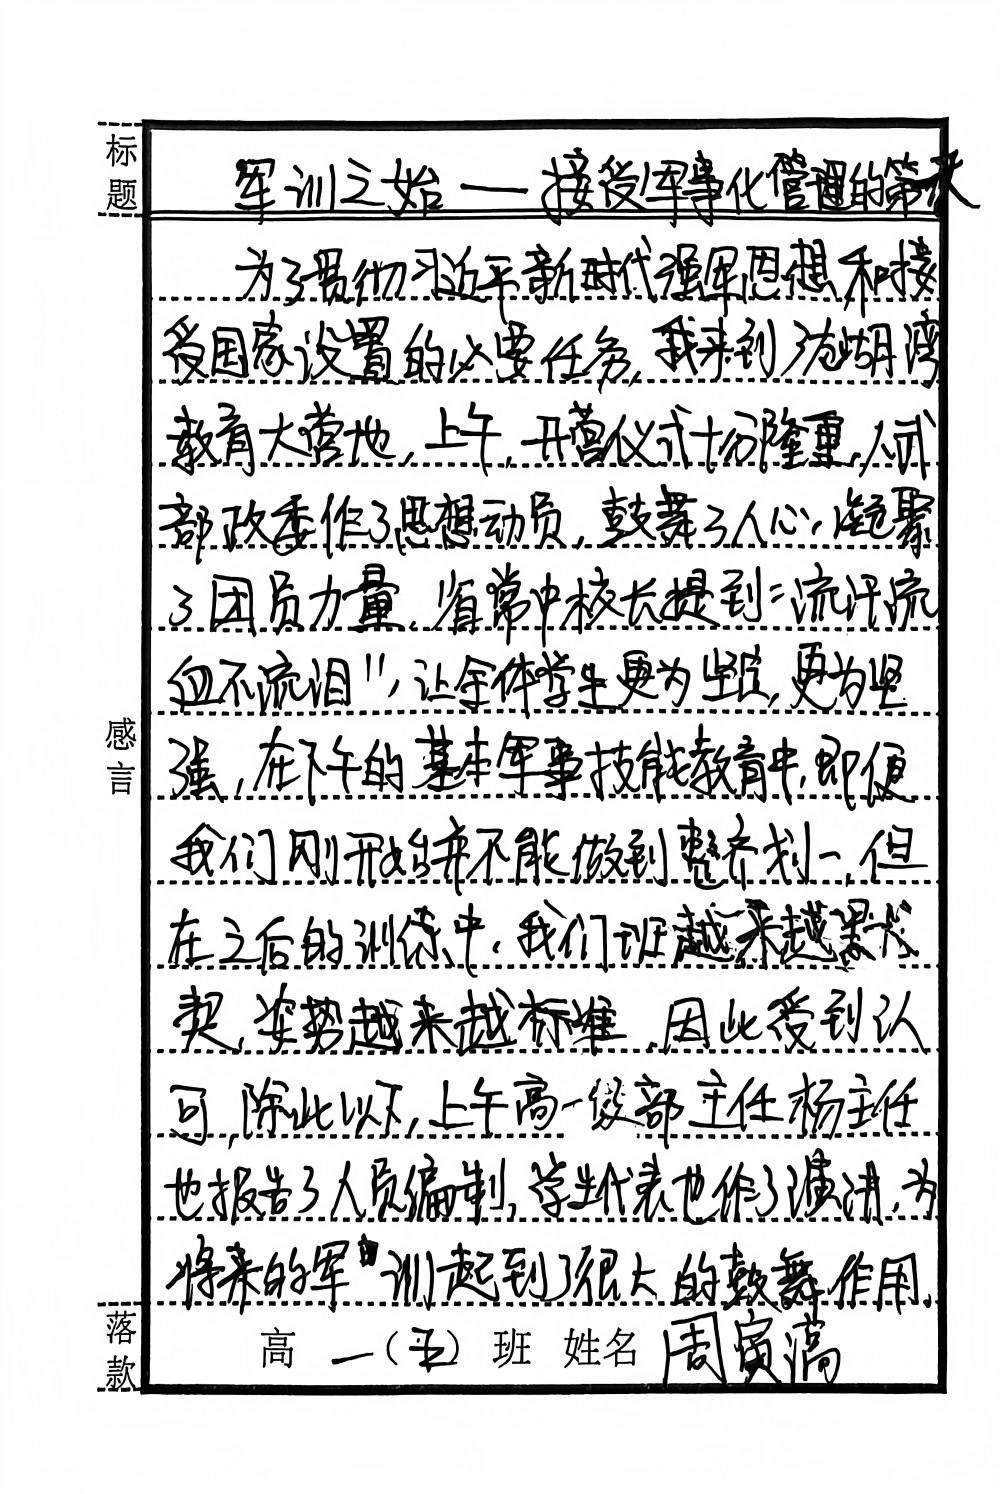 标题
军训之始——接受军事化管理的第一天
为了贯彻习近平新时代强军思想和接
受国家设置的必要任务,我来到滆湖湾
教育大营地,上午,开营仪式十分隆重,人武
部政委作了思想动员,鼓舞了人心,凝聚
了团员力量,省常中校长提到"流汗流
血不流泪",让全体学生更为坚定,更为坚
感言
强,在下午的基本军事技能教育中,即便
我们刚开始并不能做到整齐划一,但
在之后的训练中,我们班越来越默
契,姿势越来越标准,因此受到认
可,除此以外,上午高一级部主任杨主任
也报告了人员编制,学生代表也作了演讲,为
将来的军训起到了很大的鼓舞作用.
落款
高一(五)班 姓名周寅滈